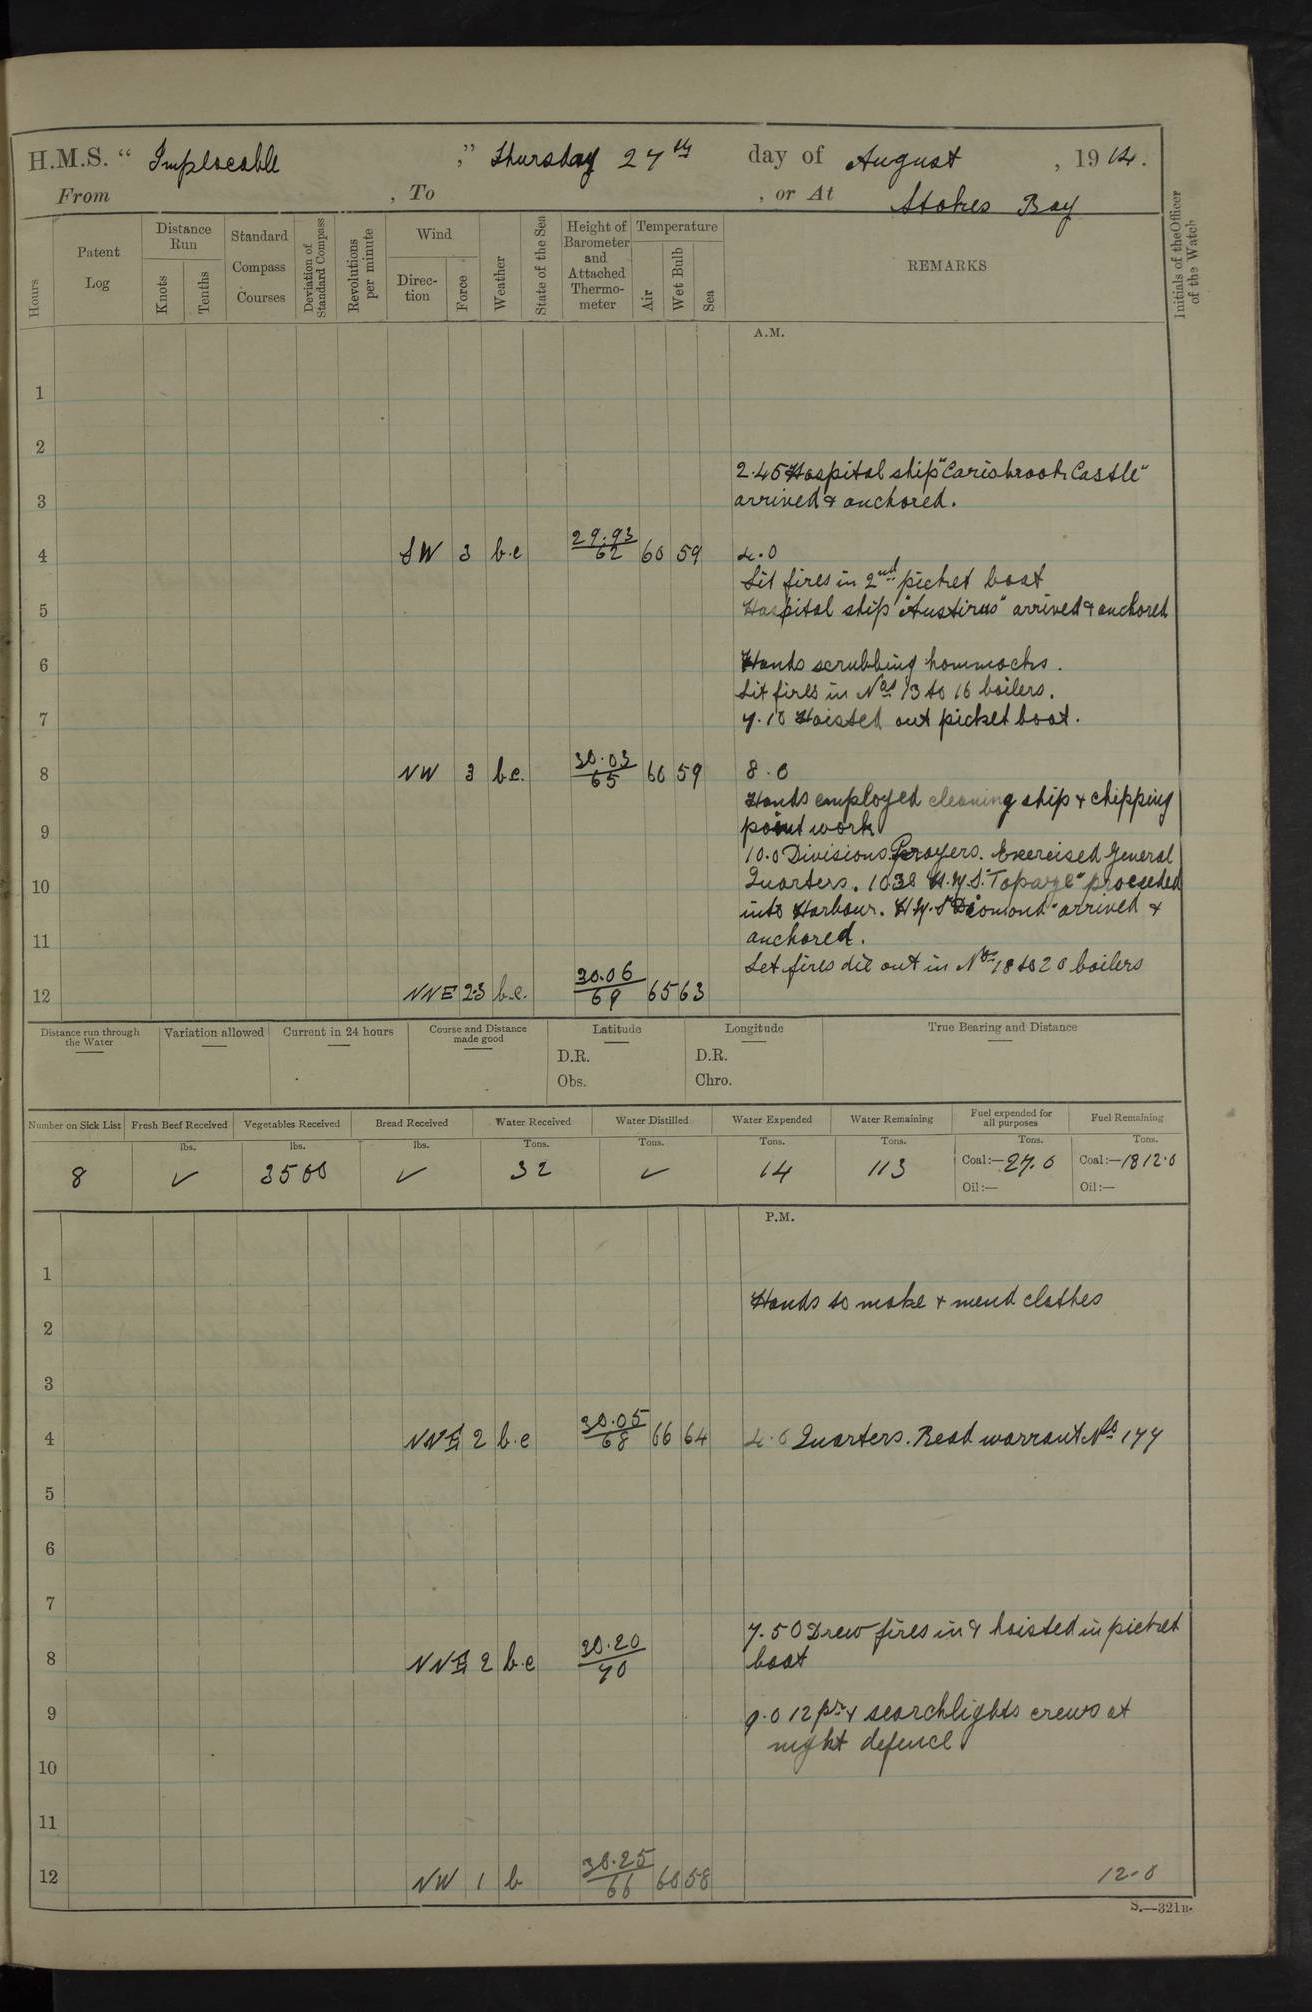 H.M.S. “ Implacable ,” Thursday 27th day of August , 1914.
From , To , or At Stokes Bay
Hours
Patent Log
Distance Run
Knots
Tenths
Standard Compass Courses
Deviation of Standard Compass
Revolutions per minute
Wind
Direc-tion
Force
Weather
State of the Sea
Height of Barometer and Attached Thermo-meter
Temperature
Air
Wet Bulb
Sea
REMARKS
Initials of the Officer of the Watch
A.M.
1
2
2.45 Hospital ship "Carisbrook Castle"
3 arrived & anchored.
4 SW 3 b.c 29.93/62 60 59 4.0
Lit fires in 2nd picket boat
5 Hospital ship arrived & anchored
6 Hands scrubbing hammocks.
Lit fires in Nos 13 to 16 boilers.
7 7.10 Hoisted out picket boat.
8 NW 3 b.c. 30.03/65 60 59 8.0
Hands employed cleaning ship & chipping
9 paint work
10.0 Divisions Prayers. Exercised General
10 Quarters. 1038 H.M.S. "Topaze" proceeded
into Harbour. H.M.S "Diamond" arrived &
11 anchored.
Let fires die out in Nos 18 to 20 boilers
12 NNE 2.3 b.c. 30.06/69 65 63
Distance run through the Water
Variation allowed
Current in 24 hours
Course and Distance made good
Latitude
D.R.
Obs.
Longitude
D.R.
Chro.
True Bearing and Distance
Number on Sick List Fresh Beef Received Vegetables Received Bread Received Water Received Water Distilled Water Expended Water Remaining Fuel expended for all purposes Fuel Remaining
lbs. lbs. lbs. Tons. Tons. Tons. Tons. Tons. Tons.
8 ✓ 3500 ✓ 32 ✓ 14 113 Coal:—27.0 Coal:—1812.0
Oil:— Oil:—
P.M.
1
Hands to make & mend clothes
2
3
4 NNE 2 b.c 30.05/68 66 64 4.0 Quarters. Read warrant No 177
5
6
7
7.50 Drew fires in & hoisted in picket
8 NNE 2 b.c 30.20/70 boat
9 9.0 12pr & searchlights crews at
night defence
10
11
12 NW 1 b 30.25/66 60 58 12.0
S.—321B.